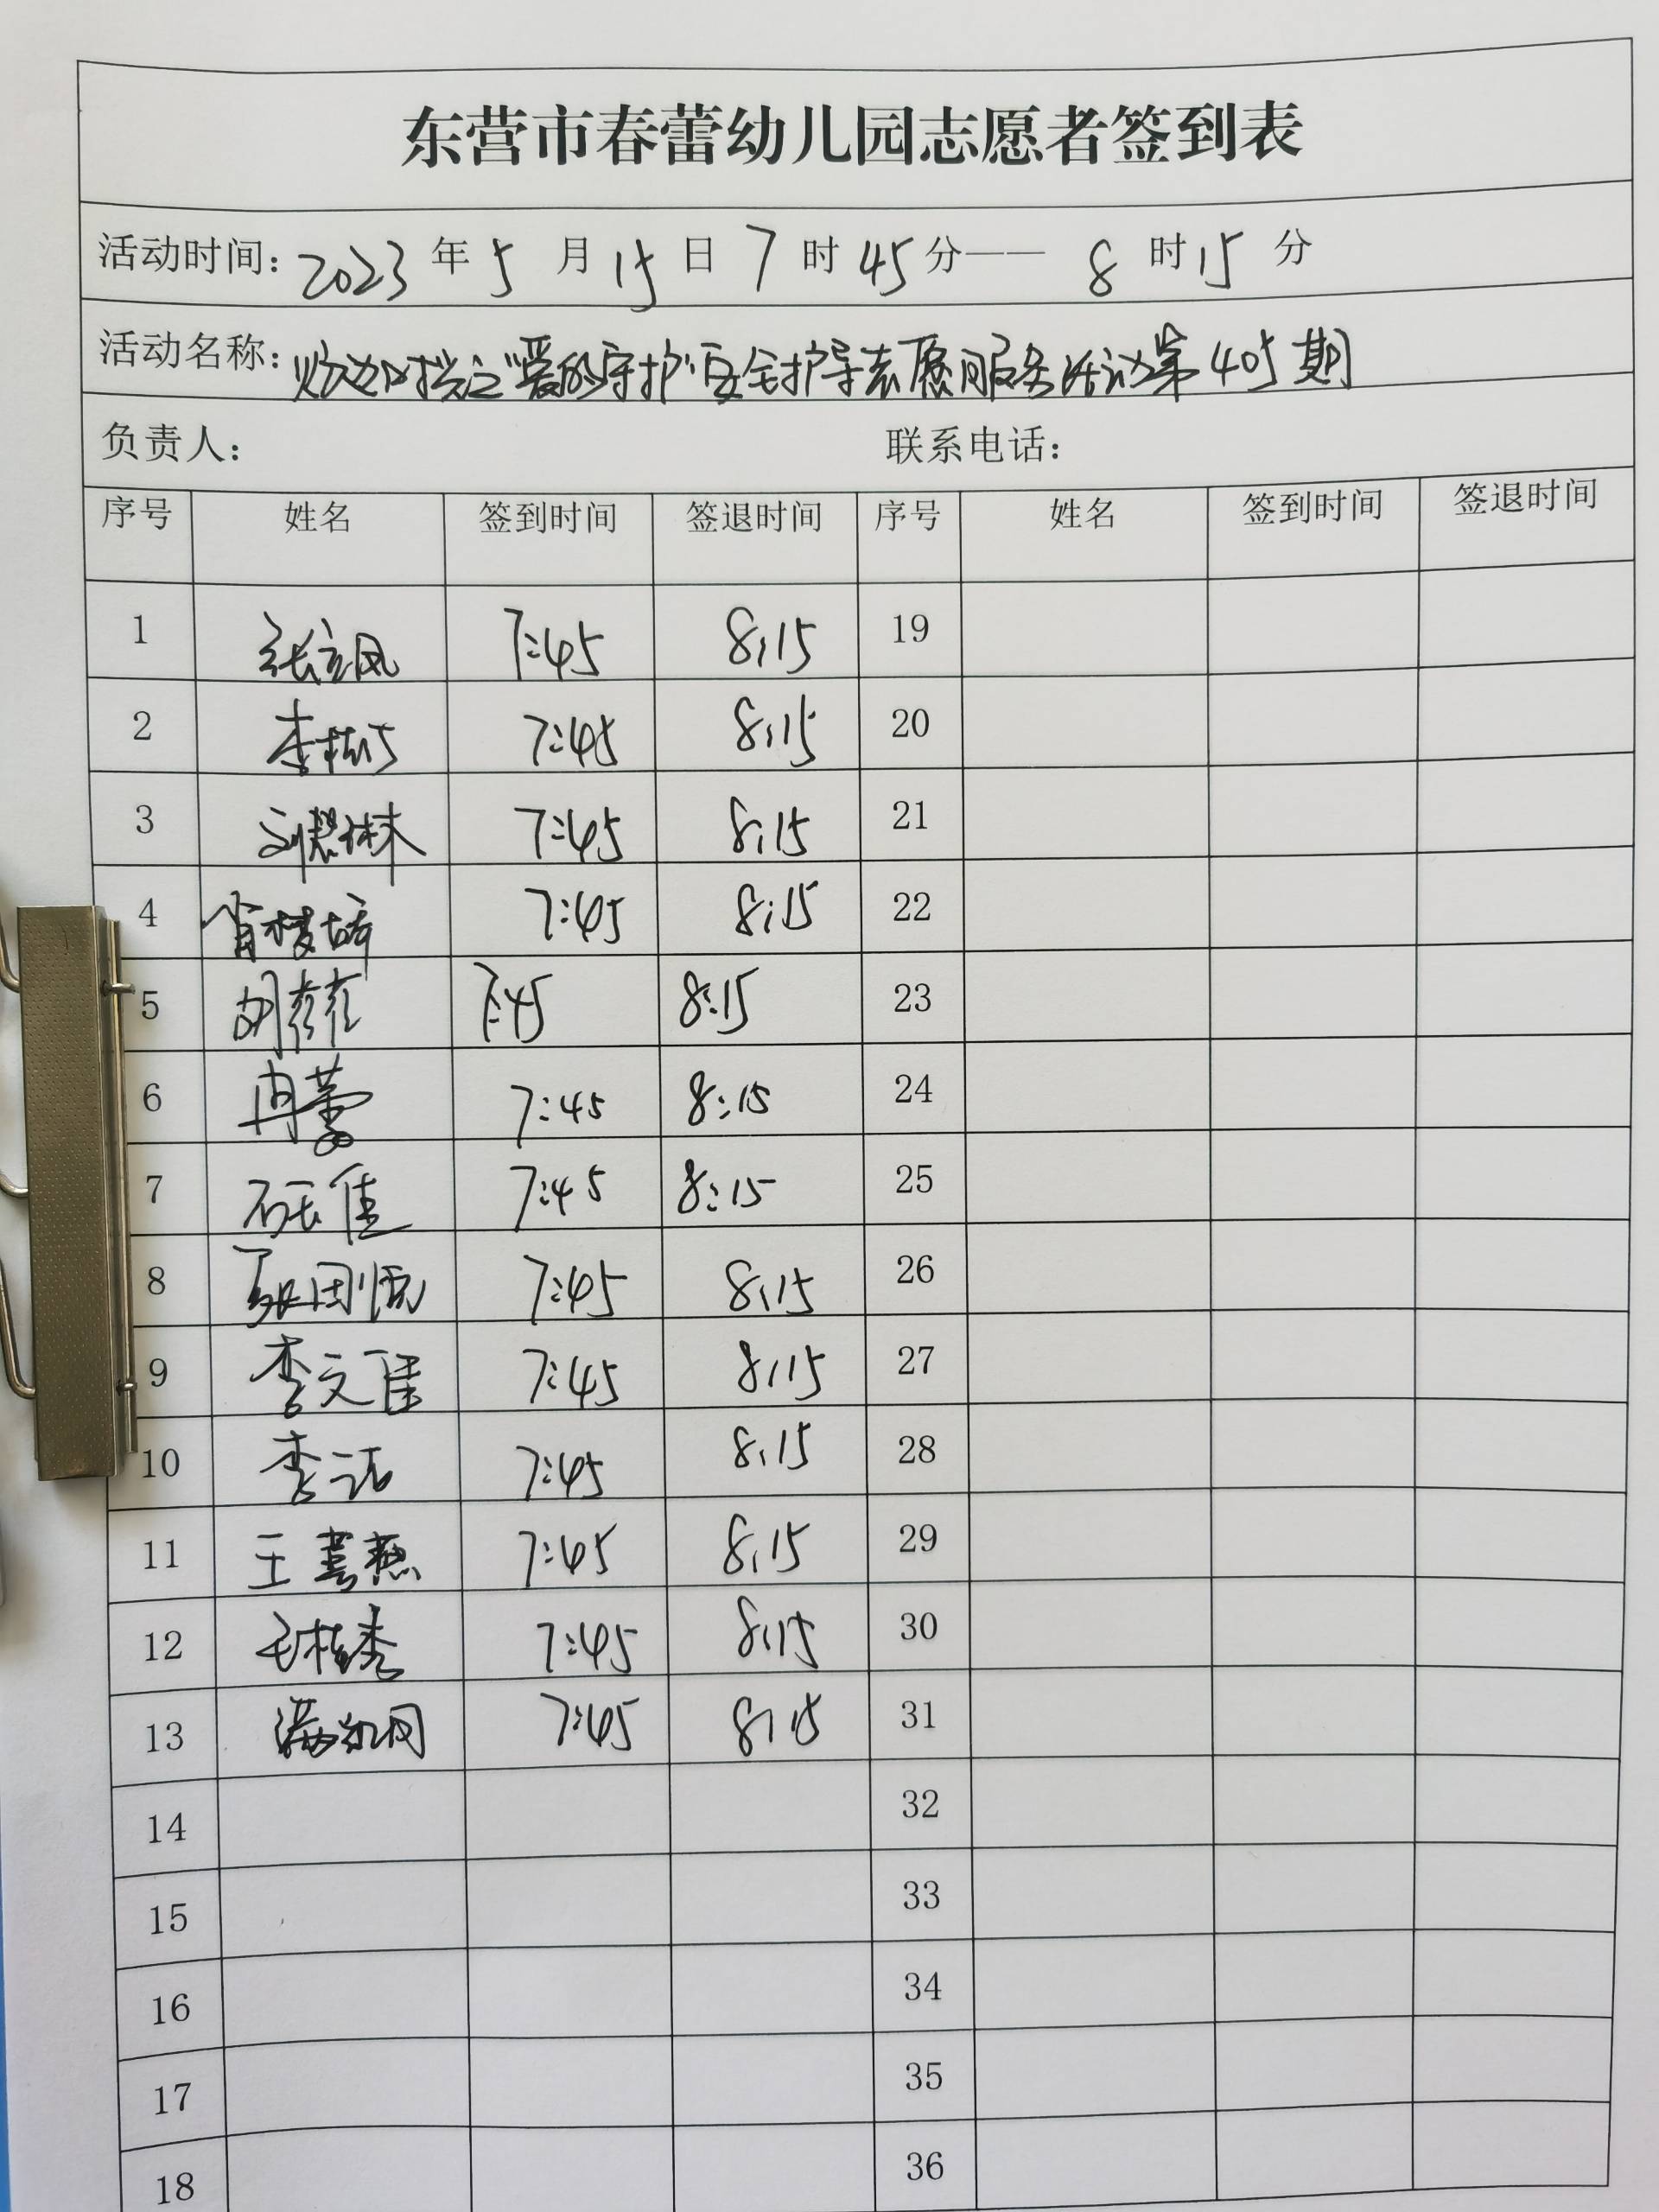 东营市春蕾幼儿园志愿者签到表
活动时间：2023 年 5 月 15 日 7 时 45 分—— 8 时 15 分
活动名称："爱的守护"安全护导志愿服务活动第405期
负责人： 联系电话：
序号 姓名 签到时间 签退时间 序号 姓名 签到时间 签退时间
1 张立凤 7:45 8:15 19
2 李 7:45 8:15 20
3 刘 7:45 8:15 21
4 肖梦婷 7:45 8:15 22
5 胡菲菲 7:45 8:15 23
6 冉蕾 7:45 8:15 24
7 石佳 7:45 8:15 25
8 7:45 8:15 26
9 李文佳 7:45 8:15 27
10 李洁 7:45 8:15 28
11 王喜燕 7:45 8:15 29
12 毛桂秀 7:45 8:15 30
13 7:45 8:15 31
14 32
15 33
16 34
17 35
18 36